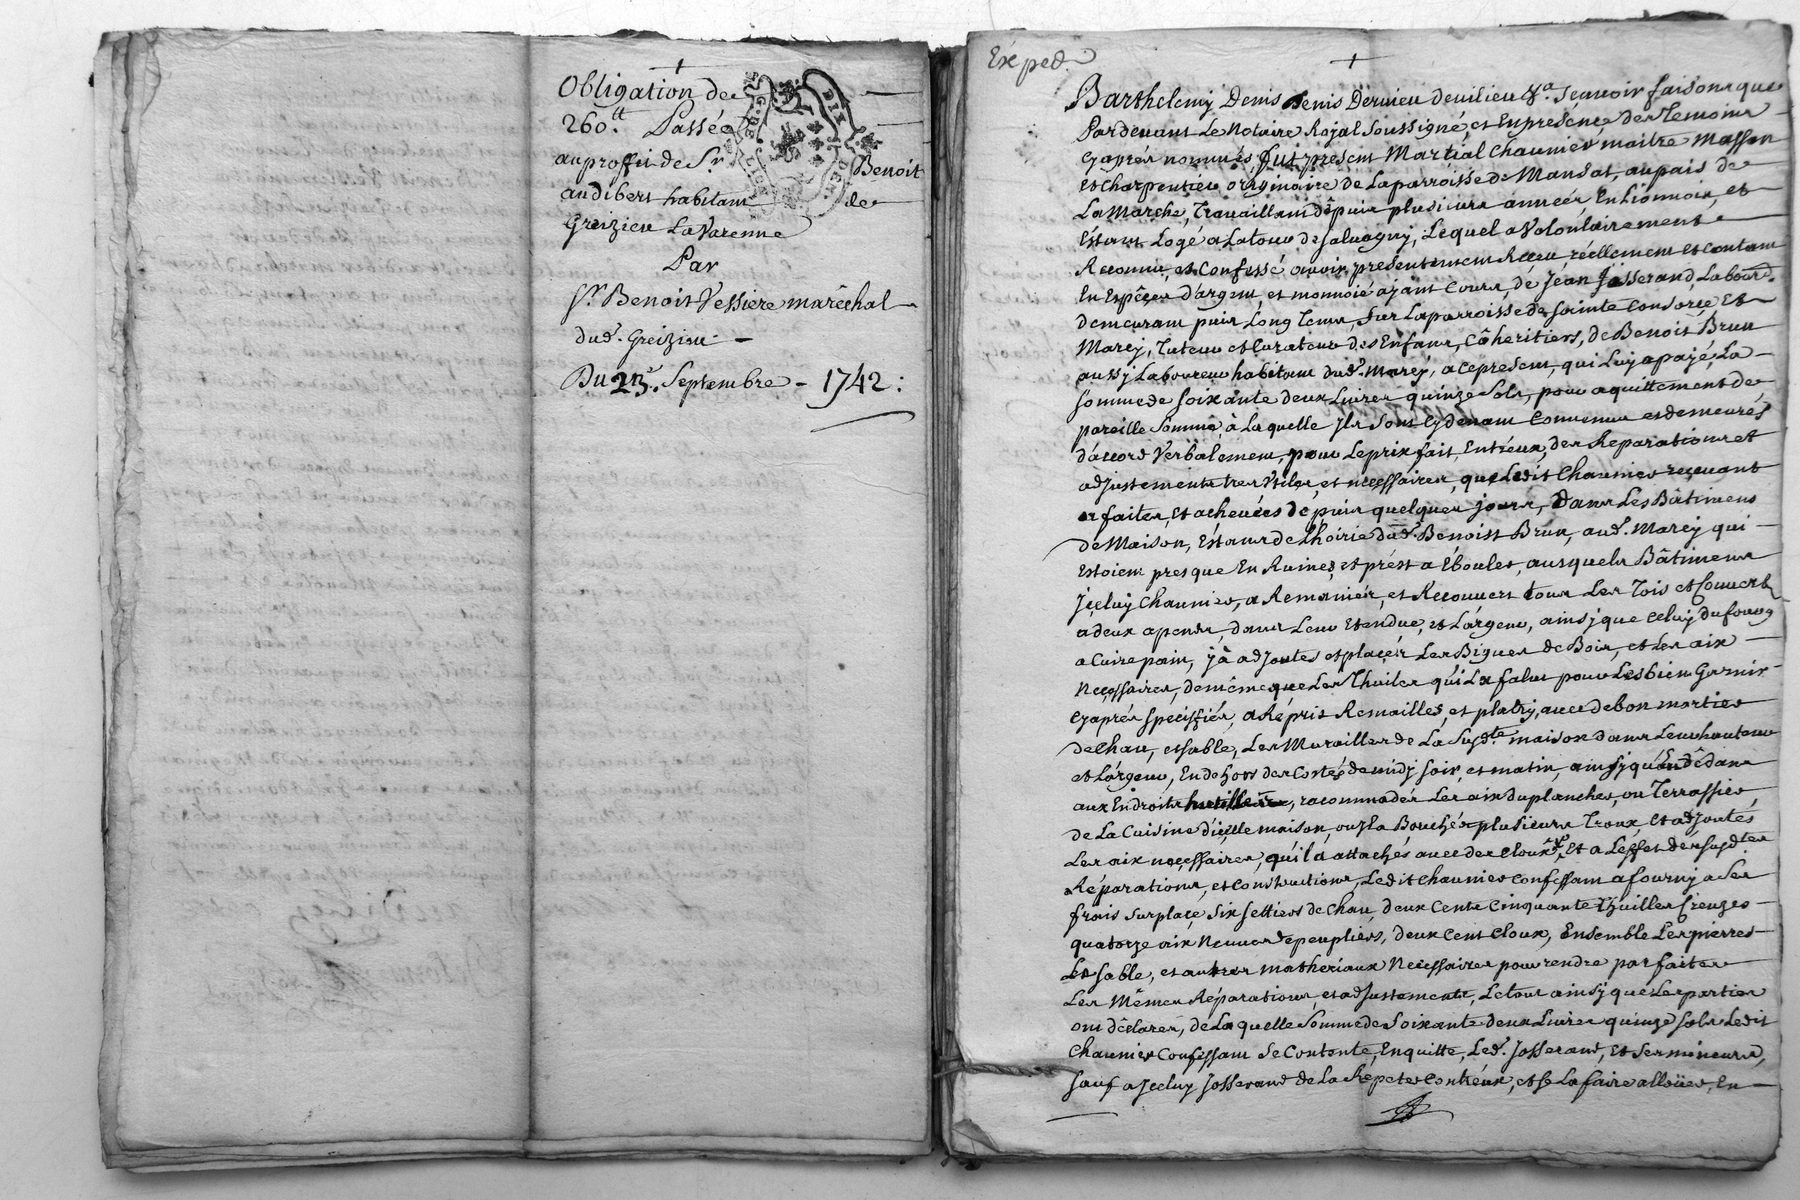 Obligation de
260.tt Passée
au proffit de Sr. Benoit
audibert habitant de
Greizieu La Varenne
Par
Sr. Benoit Vessiere marêchal
dud. Greizieu
Du 23e. Septembre - 1742 :
Exped.
Barthelemy Denis Denis Dervieu Devilieu &a. Scavoir faisons que
Pardevant Le Notaire Royal soussigné, et En presence des Temoins
Cyaprés nommés, fut present Martial Chaumier maitre Masson
et Charpentier originaire de La parroisse de Mansat, au pais de
La Marche, Travaillant dêpuis plusieurs années, En Lionnois, et
Estant Logé a La tour de Salvagny, Lequel a Volontairement
Reconnu, et Confessé avoir presentement Receu, réellement et contant
En Espêces d'argent, et monnoie ayant Cours, de Jéan Josserand, Labour.
demeurant puis Long Tems, sur La parroisse de Sainte Consorce Et
Marcy, Tuteur et Curateur des Enfans, Côheritiers, de Benoit Brun
aussy Laboureur habitant dud. Marcy, a ce present, qui Luy a payé, La
somme de soixante deux Livres quinze Sols, pour aquittement de
pareille somme, à La quelle Ils sont Cydevant Convenus et demeurés
d'accord Verbalement, pour Le prix fait, Entréux, des Reparations et
adjustements tres Utiles, et necessaires, que Ledit Chaumier
faites, et achevées depuis quelques jours, Dans Les Bâtimens
de Maison, Estans de L'hoirie dud. Benoist Brun, aud. Marcy qui
Estoient presque En Ruines, et prést a Ebouler, ausquels Bâtimens
Iceluy Chaumier, a Remanier, et Recouvert tous Les Tois et Couverts
a deux apents, dans Leur Etendue, et Lárgeur, ainsy que Celuy du fourg
a Cuire pain, y à adjoutes et placer Les Bigues de Bois, et Les aix
Necessaires, de même que Les Thuiles qu'il a falut pour Les bien Garnir
Cyaprés specifiés, a Répris Remailles, et platry, avec de bon mortier
de Chau, et sable, Les Murailles de La Susd.te maison dans Leur hauteur
et Lárgeur, En dehors des Costés de midy soir, et matin, ainsy qu'en dêdans
aux Endroits , racommodér Les aix du plancher, ou Terrassier
de La Cuisine d'icelle maison, ou Il a Bouchér plusieurs Troux, et adjoutés
Les aix necessaires, qu'il à attachés avec des Cloux, Et a Léffet des susd.tes
Réparations, et Constructions, Ledit Chaumier Confessant a fourny a Ses
frais sur place, six settiers de Chau, deux Cents Cinquante thuilles Creuzes
quatorze aix Neuves de peupliers, deux Cent Cloux, Ensemble Les pierres
Le sable, et autres matheriaux Necessaires pour rendre parfaites
Les Mêmes Réparations, et adjustements, Le tout ainsy que Les parties
ont dêclarer, de La quelle Somme de Soixante deux Livres quinze sols Ledit
Chaumier Confessant se Contente, En quitte, Led. Josserand, Et ses mineurs,
sauf a Iceluy Josserand de La Repeter Contréux, et se La faire allouer, En